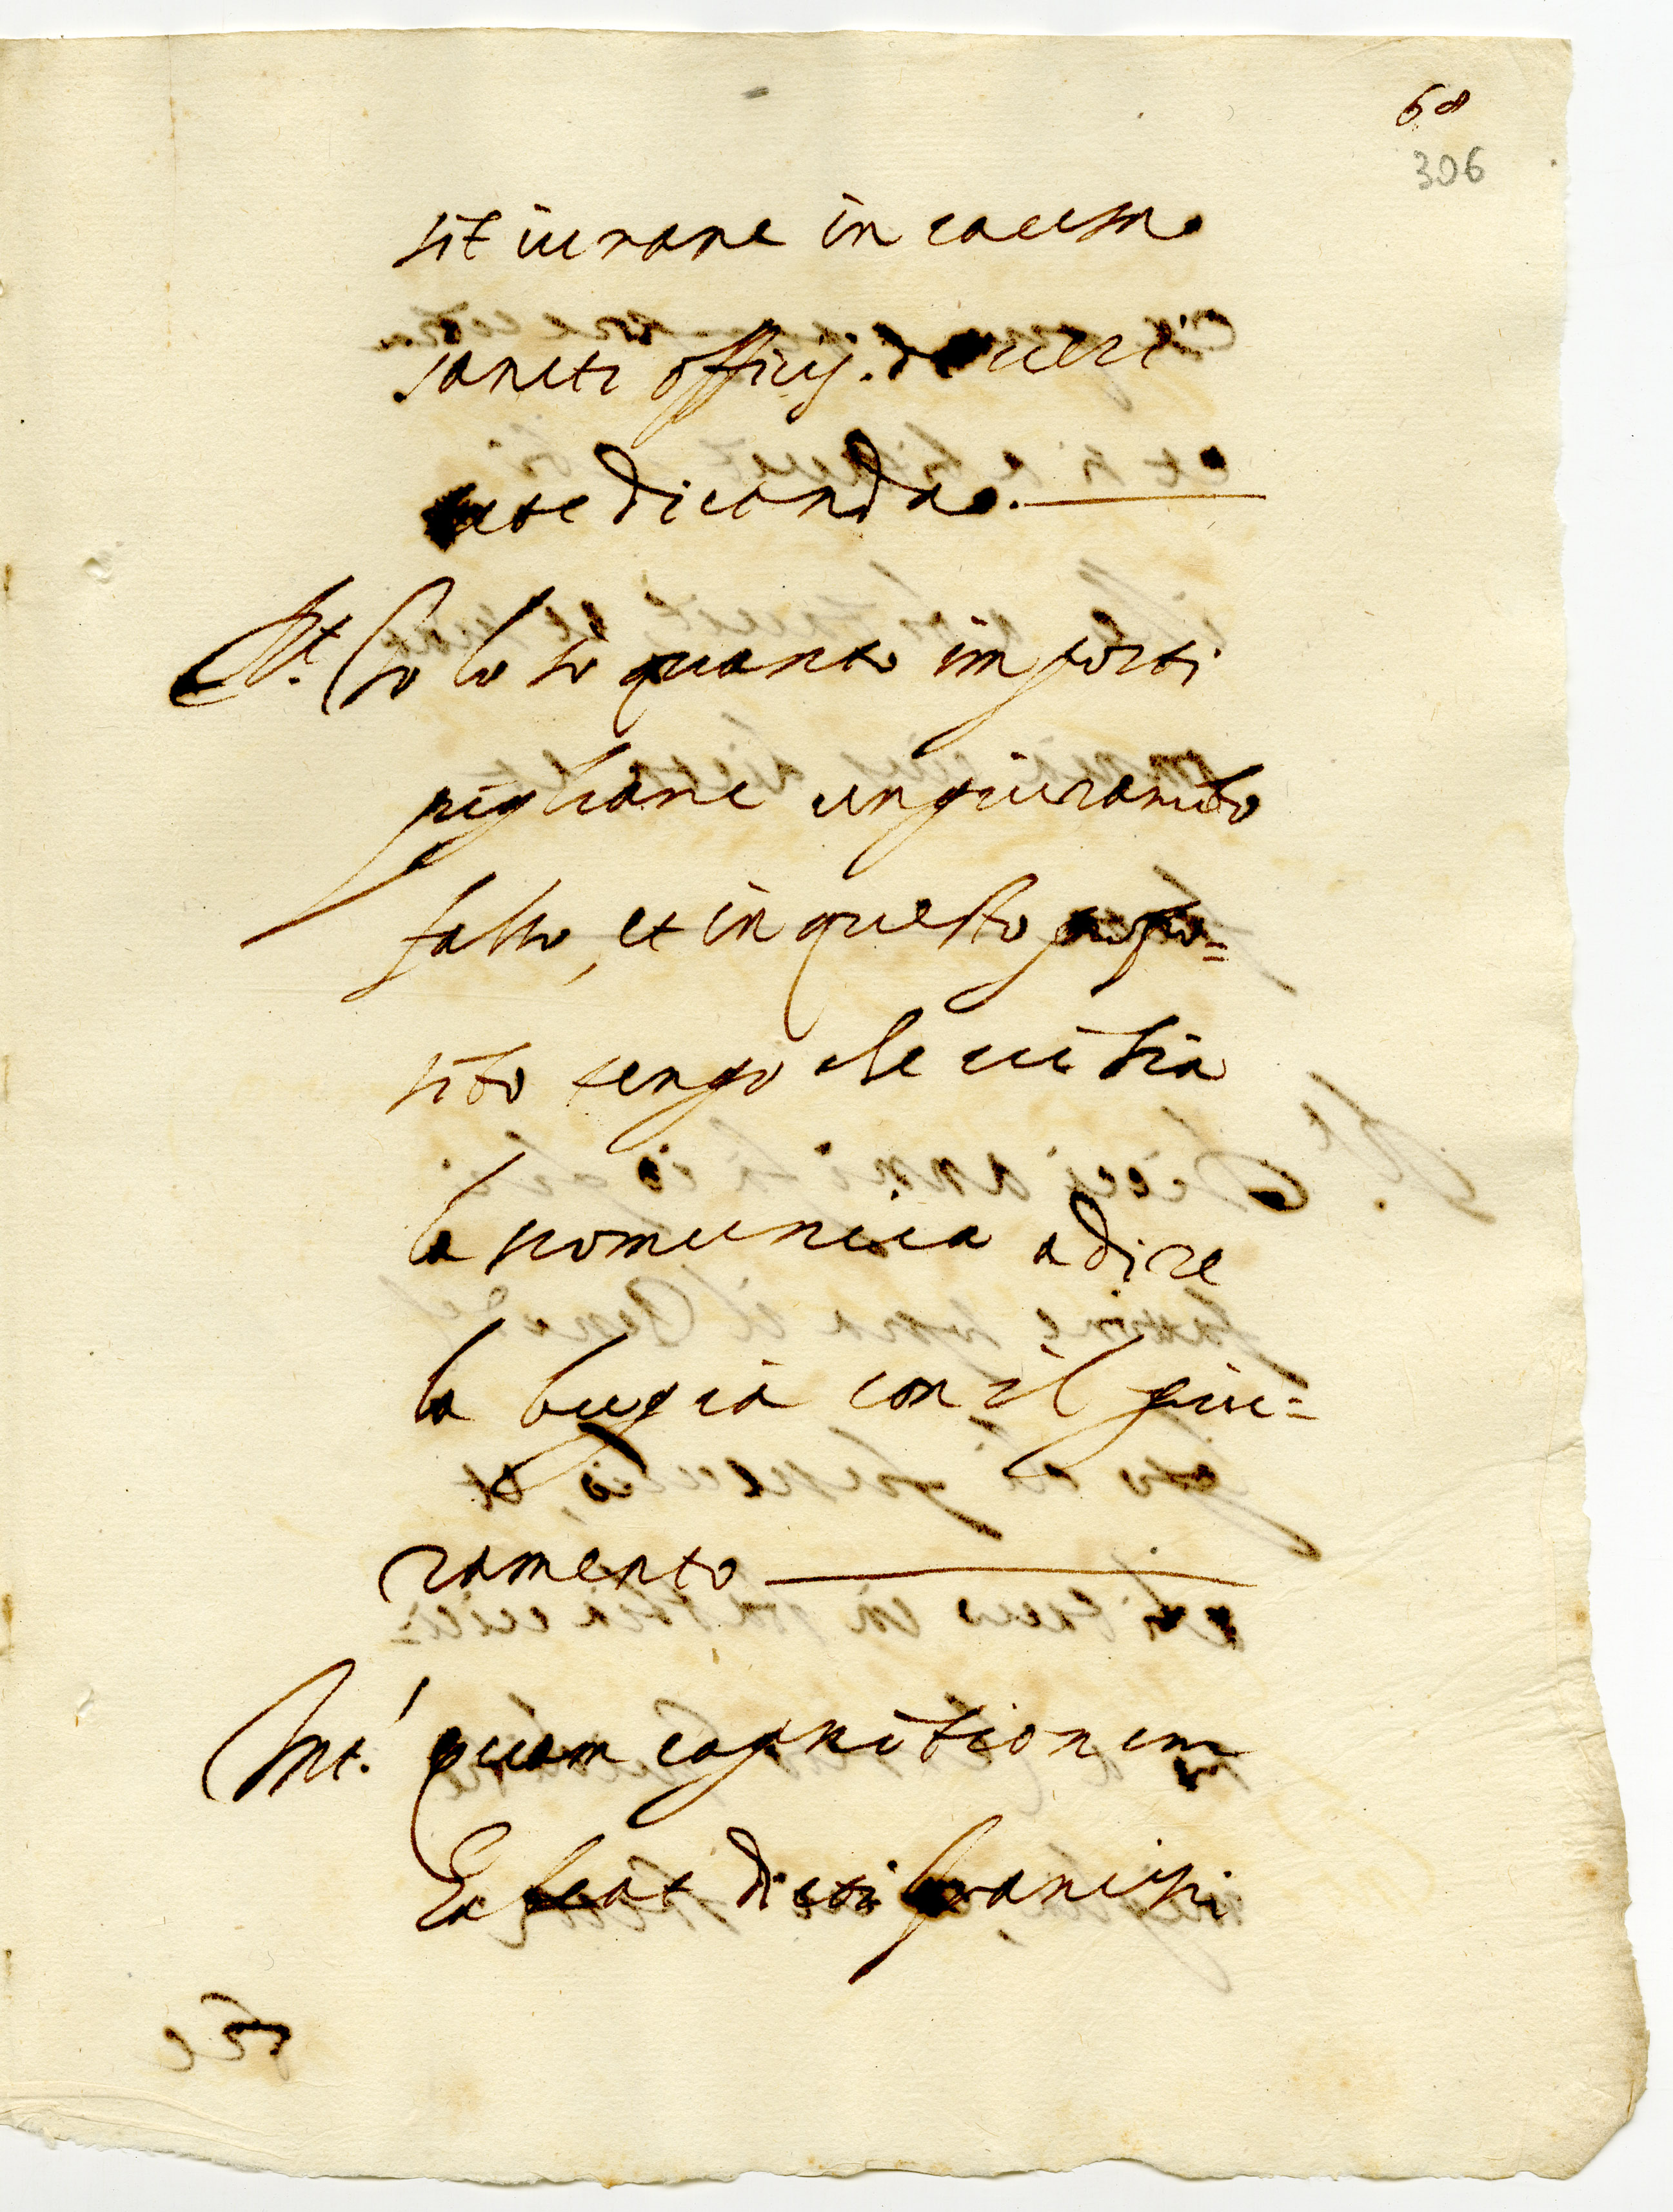 68
306
sit iurare in causa
sancti officij. de veri
tate dicenda.
Rt. Io lo sò quanto importi
pigliare un giuramto
falso, et in questo propo=
sito tengo che vi sia
la scomunica a dire
la bugia con il giu=
ramento
Int. quam cognitionem
habeat dicti francisci